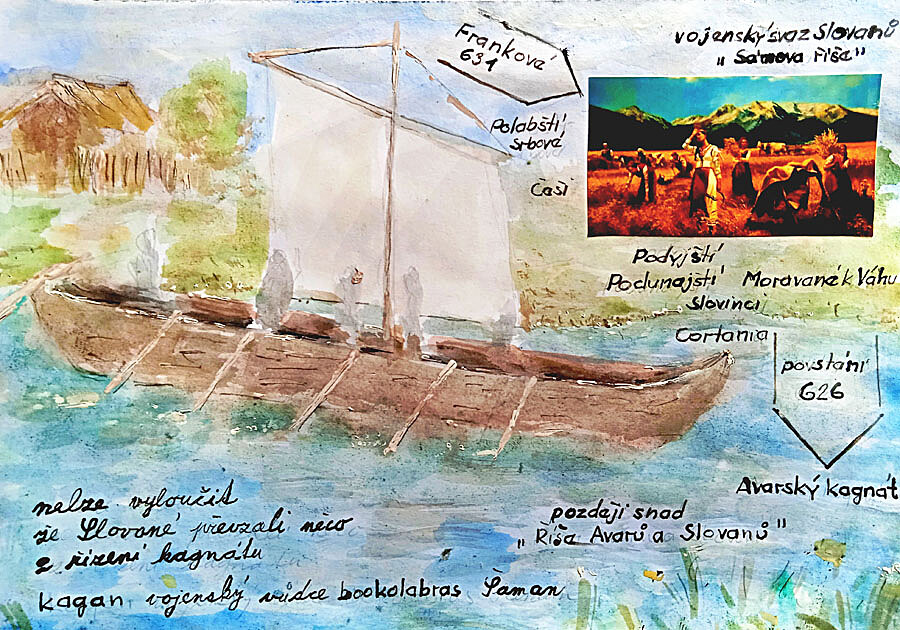 Frankové
631
vojenský svaz Slovanů
„Sámova říše"
Polabští
Srbové
Češi
Podyjští
Podunajští
Slovinci
Moravané k Váhu
Cortania
povstání
626
Avarský kagnat
nelze vyloučit
že Slované převzali něco
z řízení kagnátu
později snad
„Říša Avarů a Slovanů"
kagan vojenský vůdce bookolabras Šaman